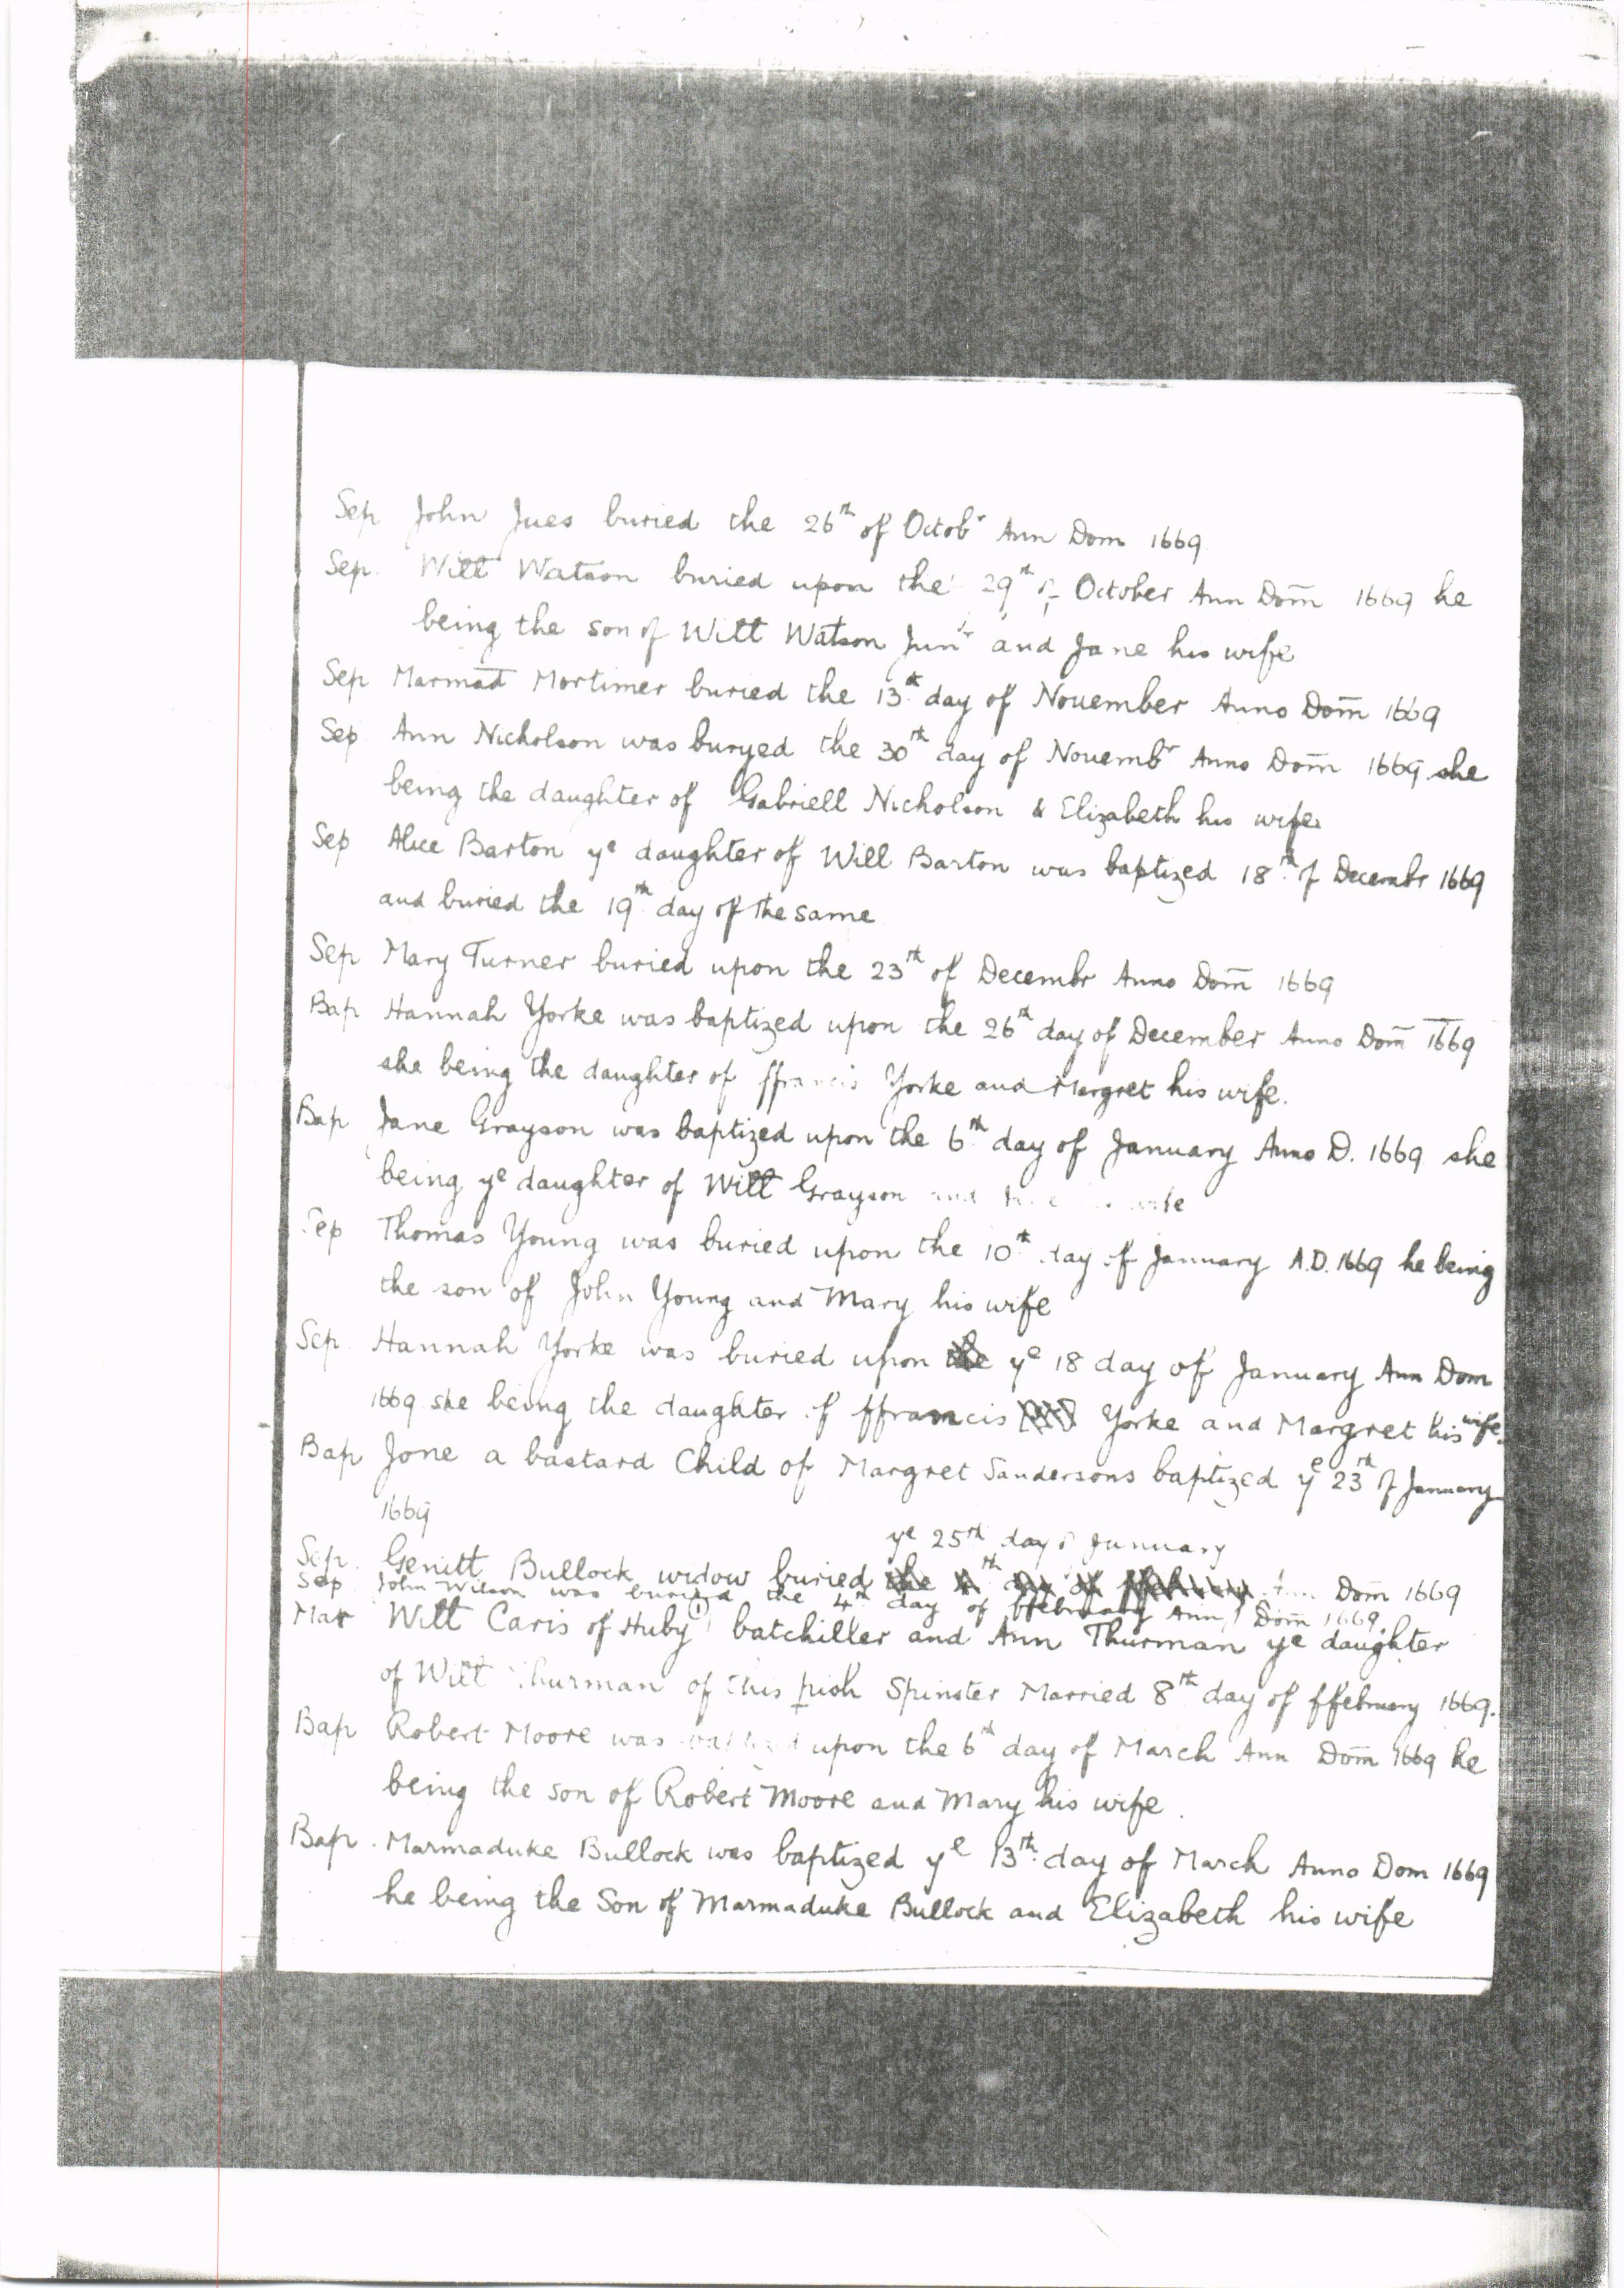 Sep John Jues buried the 26th of Octobr Ann Dom 1669
Sep. Witt Watson buried upon the 29th of October Ann Dom̄ 1669 he
being the son of Witt Watson Junr and Jane his wife
Sep Marmad Mortimer buried the 13th day of November Anno Dom̄ 1669
Sep Ann Nicholson was buryed the 30th day of Novembr Anno Dom̄ 1669 she
being the daughter of Gabriell Nicholson & Elizabeth his wife
Sep Alice Barton ye daughter of Will Barton was baptized 18th of Decembr 1669
and buried the 19th day of the same
Sep Mary Turner buried upon the 23rd of Decembr Anno Dom̄ 1669
Bap Hannah Yorke was baptized upon the 26th day of December Anno Dom̄ 1669
she being the daughter of ffrancis Yorke and Margret his wife.
Bap Jane Grayson was baptized upon the 6th day of January Anno D. 1669 she
being ye daughter of Witt Grayson and wife
Sep Thomas Young was buried upon the 10th day of January A.D. 1669 he being
the son of John Young and Mary his wife
Sep Hannah Yorke was buried upon the ye 18 day of January Ann Dom
1669 she being the daughter of ffrancis Yorke and Margret his wife.
Bap Jone a bastard Child of Margret Sandersons baptized ye 23rd of January
1669
ye 25th day of January
Sep. Genitt Bullock widow buried the 4th day of ffebruary Ann Dom̄ 1669
Sep John Wilson was buried the 4th day of ffebruary Ann Dom̄ 1669.
Mar Witt Caris of Huby (1) batchiller and Ann Thurman ye daughter
of Witt Thurman of this pish Spinster Married 8th day of ffebruary 1669.
Bap Robert Moore was baptized upon the 6th day of March Ann Dom̄ 1669 he
being the son of Robert Moore and Mary his wife.
Bap. Marmaduke Bullock was baptized ye 13th day of March Anno Dom 1669
he being the Son of Marmaduke Bullock and Elizabeth his wife